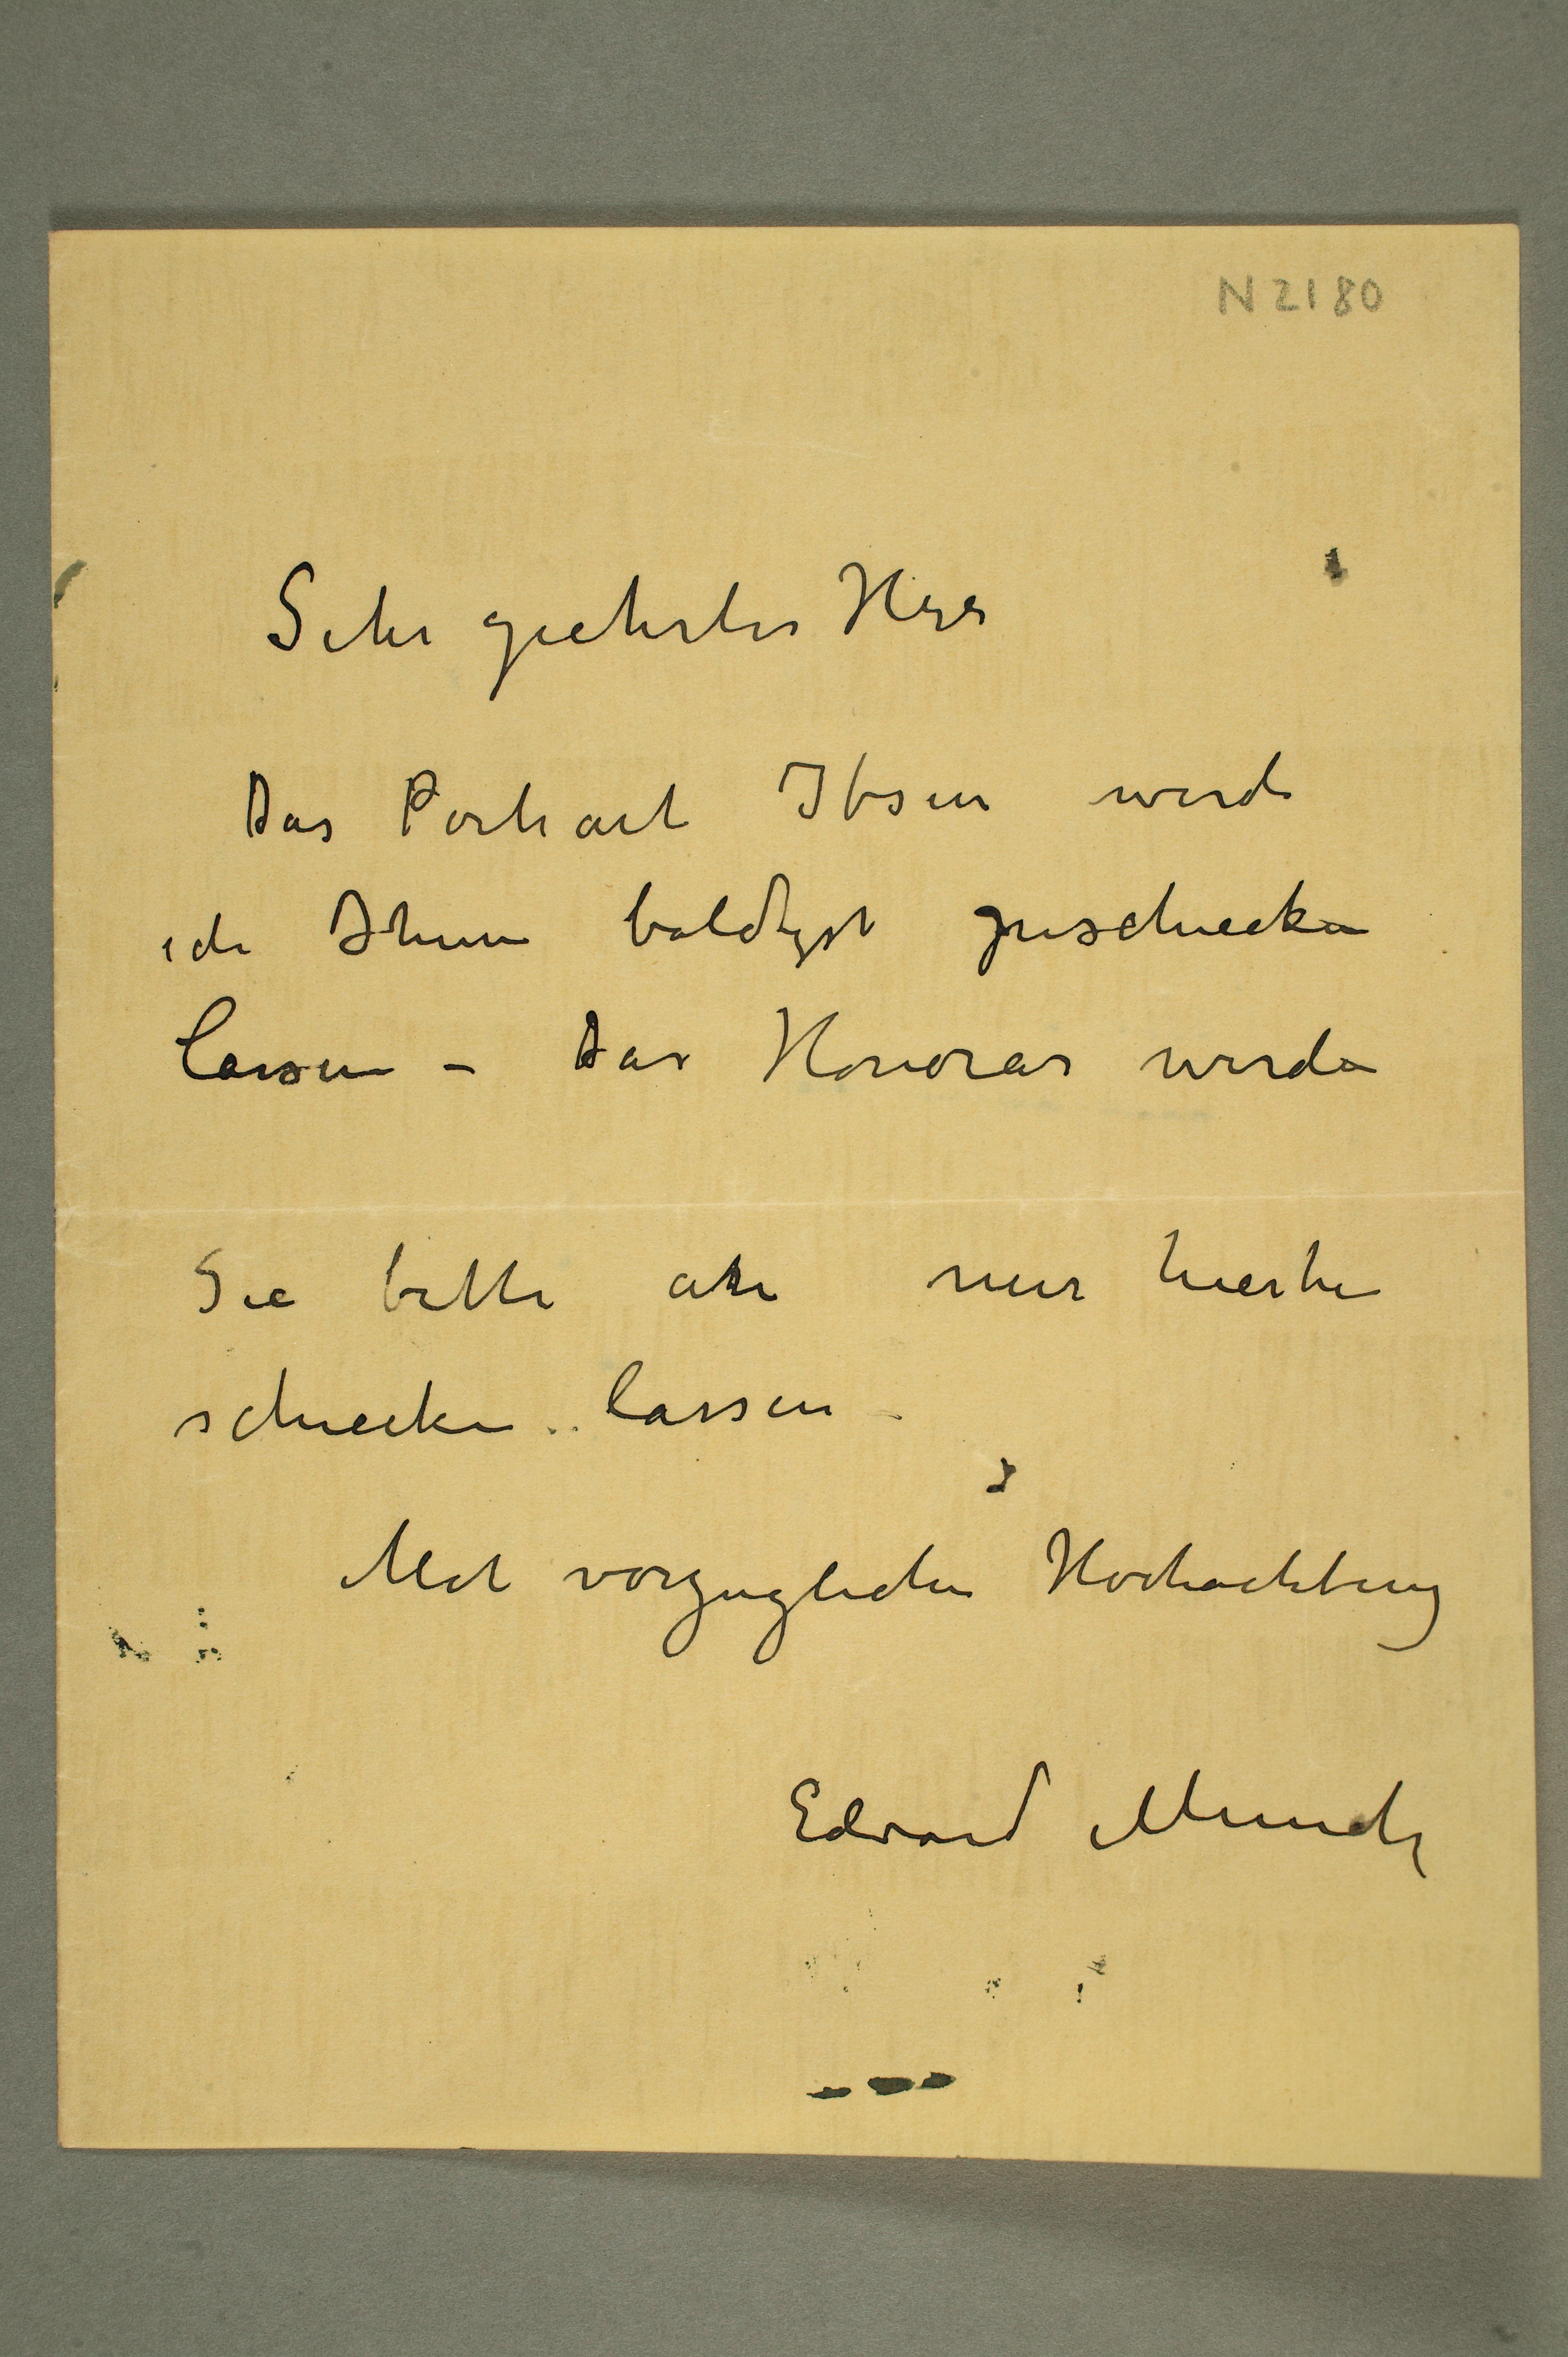 N 2180
Sehr geehrter Herr
Das Portrait Ibsen werde
ich Ihnen baldigst zuschicken
lassen – Das Honorar werden
Sie bitte an mir hierher
schicken lassen
Mit vorzuglicher Hochachtung
Edvard Munch